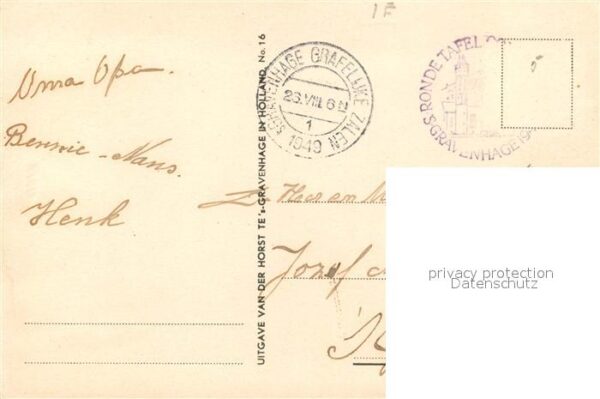 1F
Oma Opa.
Bennie - Nans.
Henk
UITGAVE VAN DER HORST TE 's-GRAVENHAGE IN HOLLAND No. 16
'S GRAVENHAGE GRAFELIJKE ZALEN
26.VIII.6N
1
1949
'S RONDE TAFEL
'S GRAVENHAGE 19
Heer en M
Jozef
privacy protection
Datenschutz